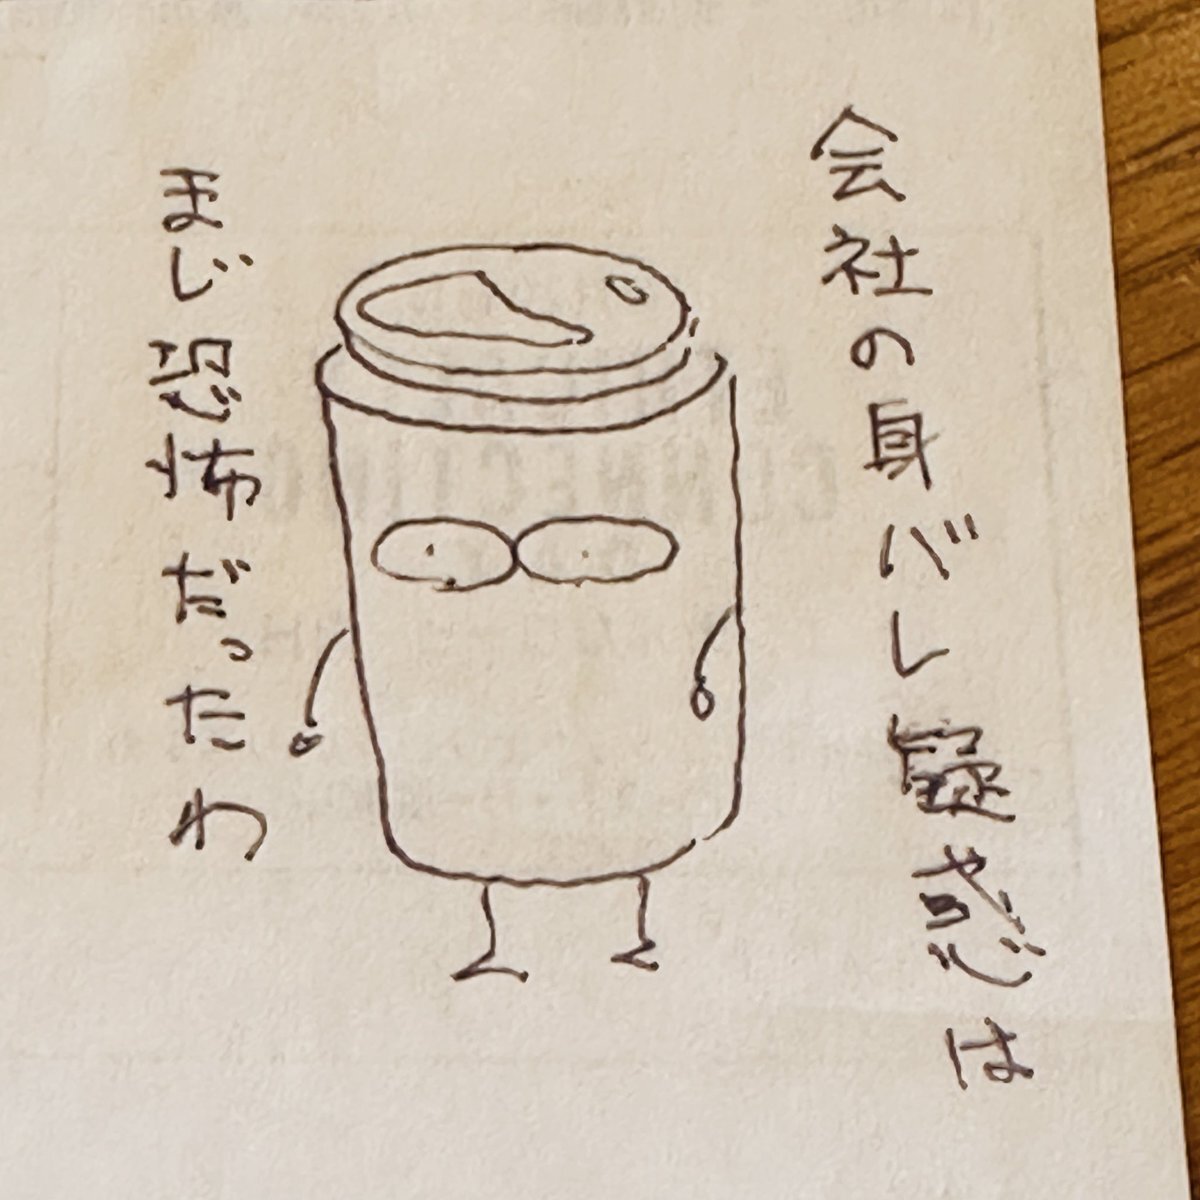 会社の身バレ疑惑は
まじ恐怖だったわ